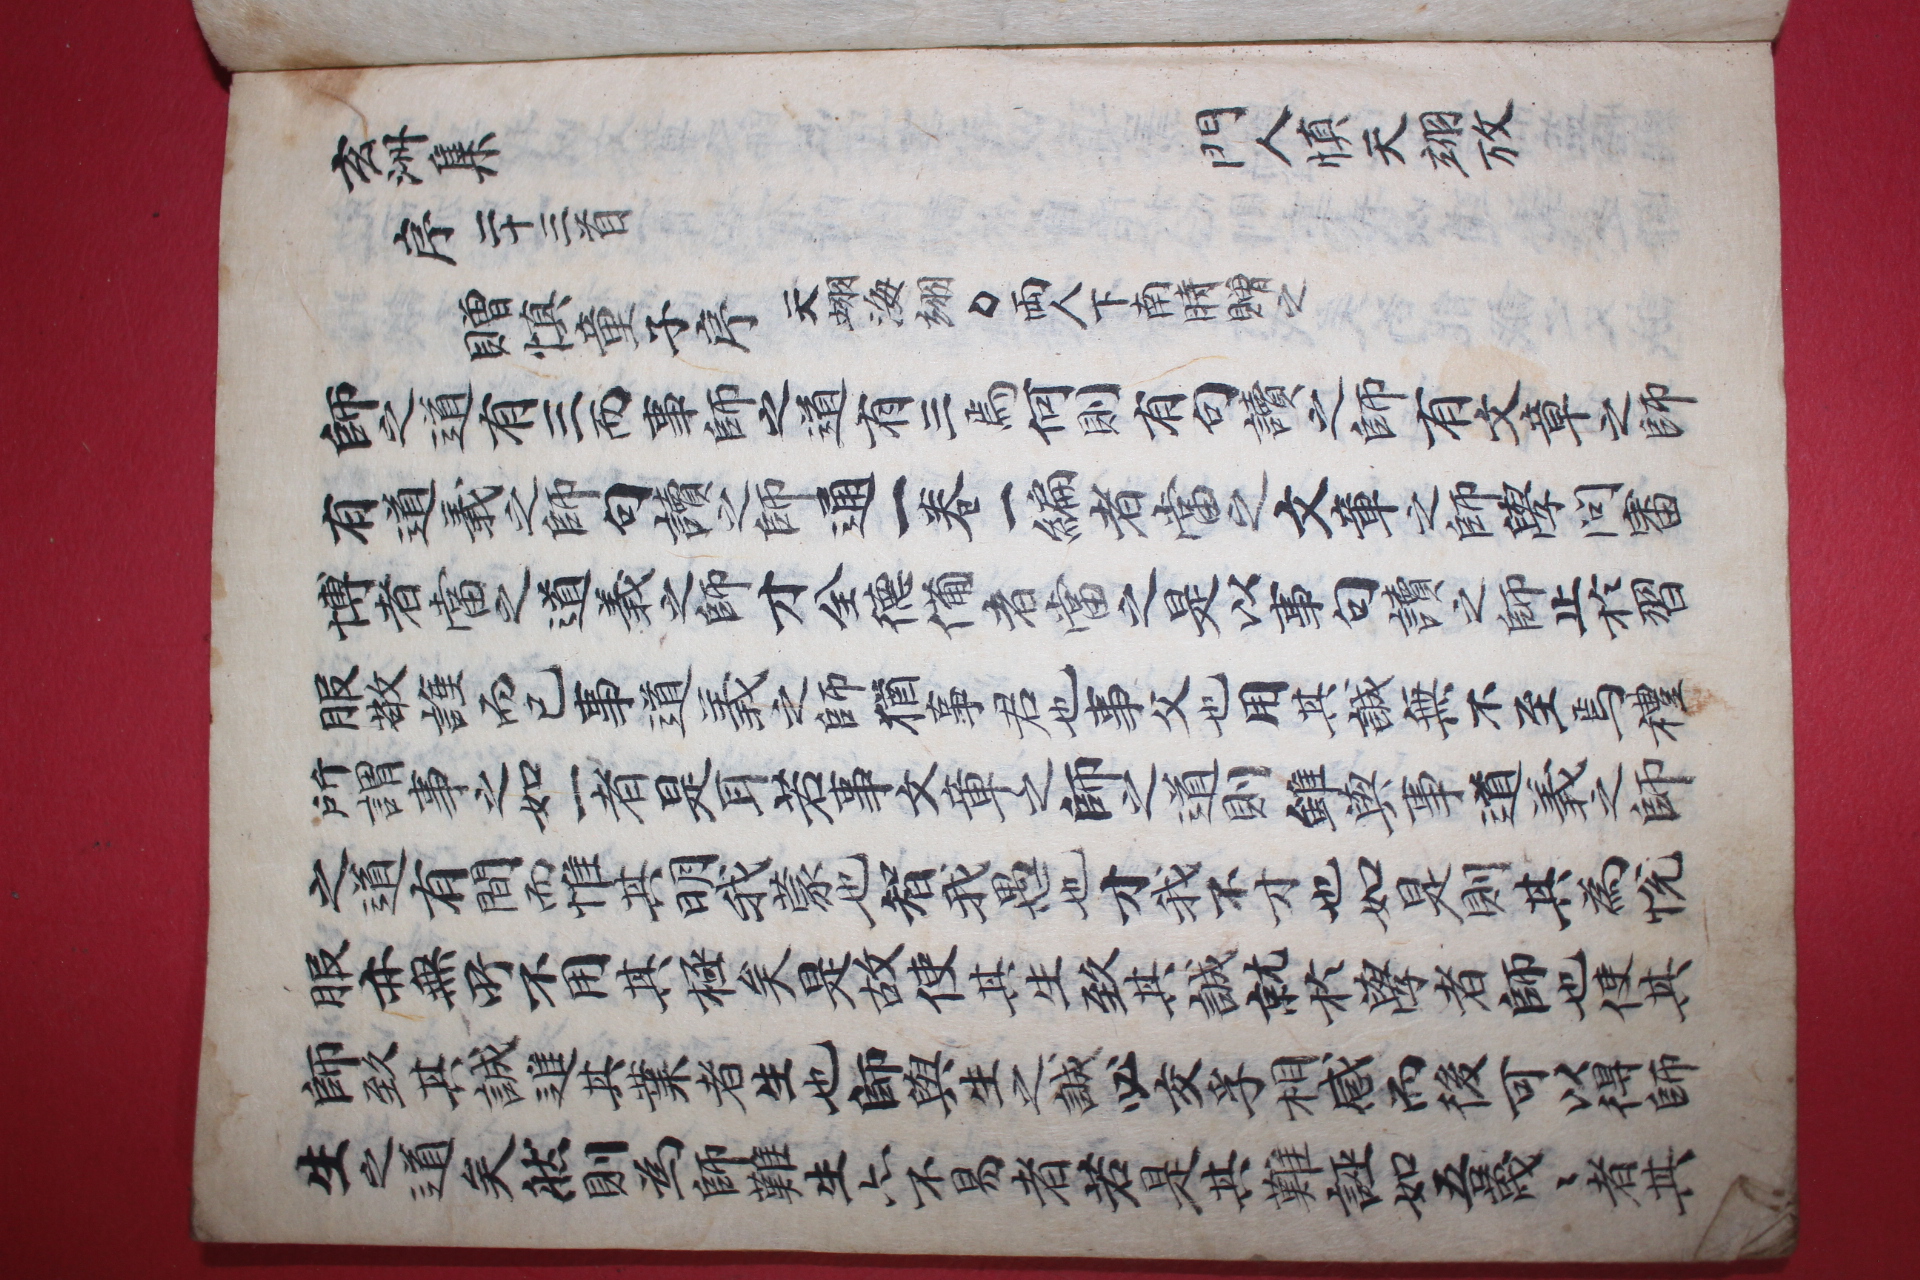 玄洲集
門人愼天翊攷
序 二十三首
贈愼童子序 天翊海翊〻兩人下南時贈之
師之道有三而事師之道有三焉何則有句讀之師有文章之師
有道義之師句讀之師通一卷一編者當之文章之師學問審
博者當之道義之師才全德備者當之是以事句讀之師止於習
服敬謹而已事道義之師猶事君也事父也用其誠無不至焉禮
所謂事之如一者是耳若事文章之師之道則雖與事道義之師
之道有間而惟其明我蒙也智我愚也才我不才也如是則其為悅
服亦無所不用其極矣是故使其生致其誠就於學者師也使其
師致其誠進其業者生也師與生之誠必交孚相感而後可以得師
生之道矣然則為師難生亦不易者若是其難誣如五蔑〻者其